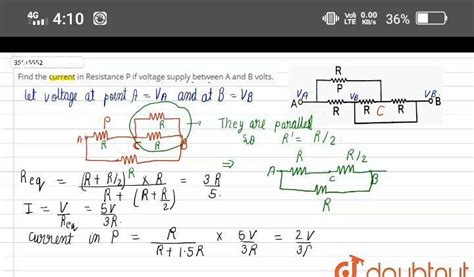 4G 4:10 Vo) LTE 0.00 KB/s 36%
Find the current in Resistance P if voltage supply between A and B volts.
let voltage at point A = VA and at B = VB
R
P
VA VB VB
A R R R B
C
P R
A R C R B
R
They are parallel
so R' = R/2
⇒
R R/2
A C B
R
Req = (R + R/2) × R / R + (R + R/2) = 3R / 5
I = V / Req = 5V / 3R
current in P = R / R + 1.5R × 5V / 3R = 2V / 3R
doubtnut